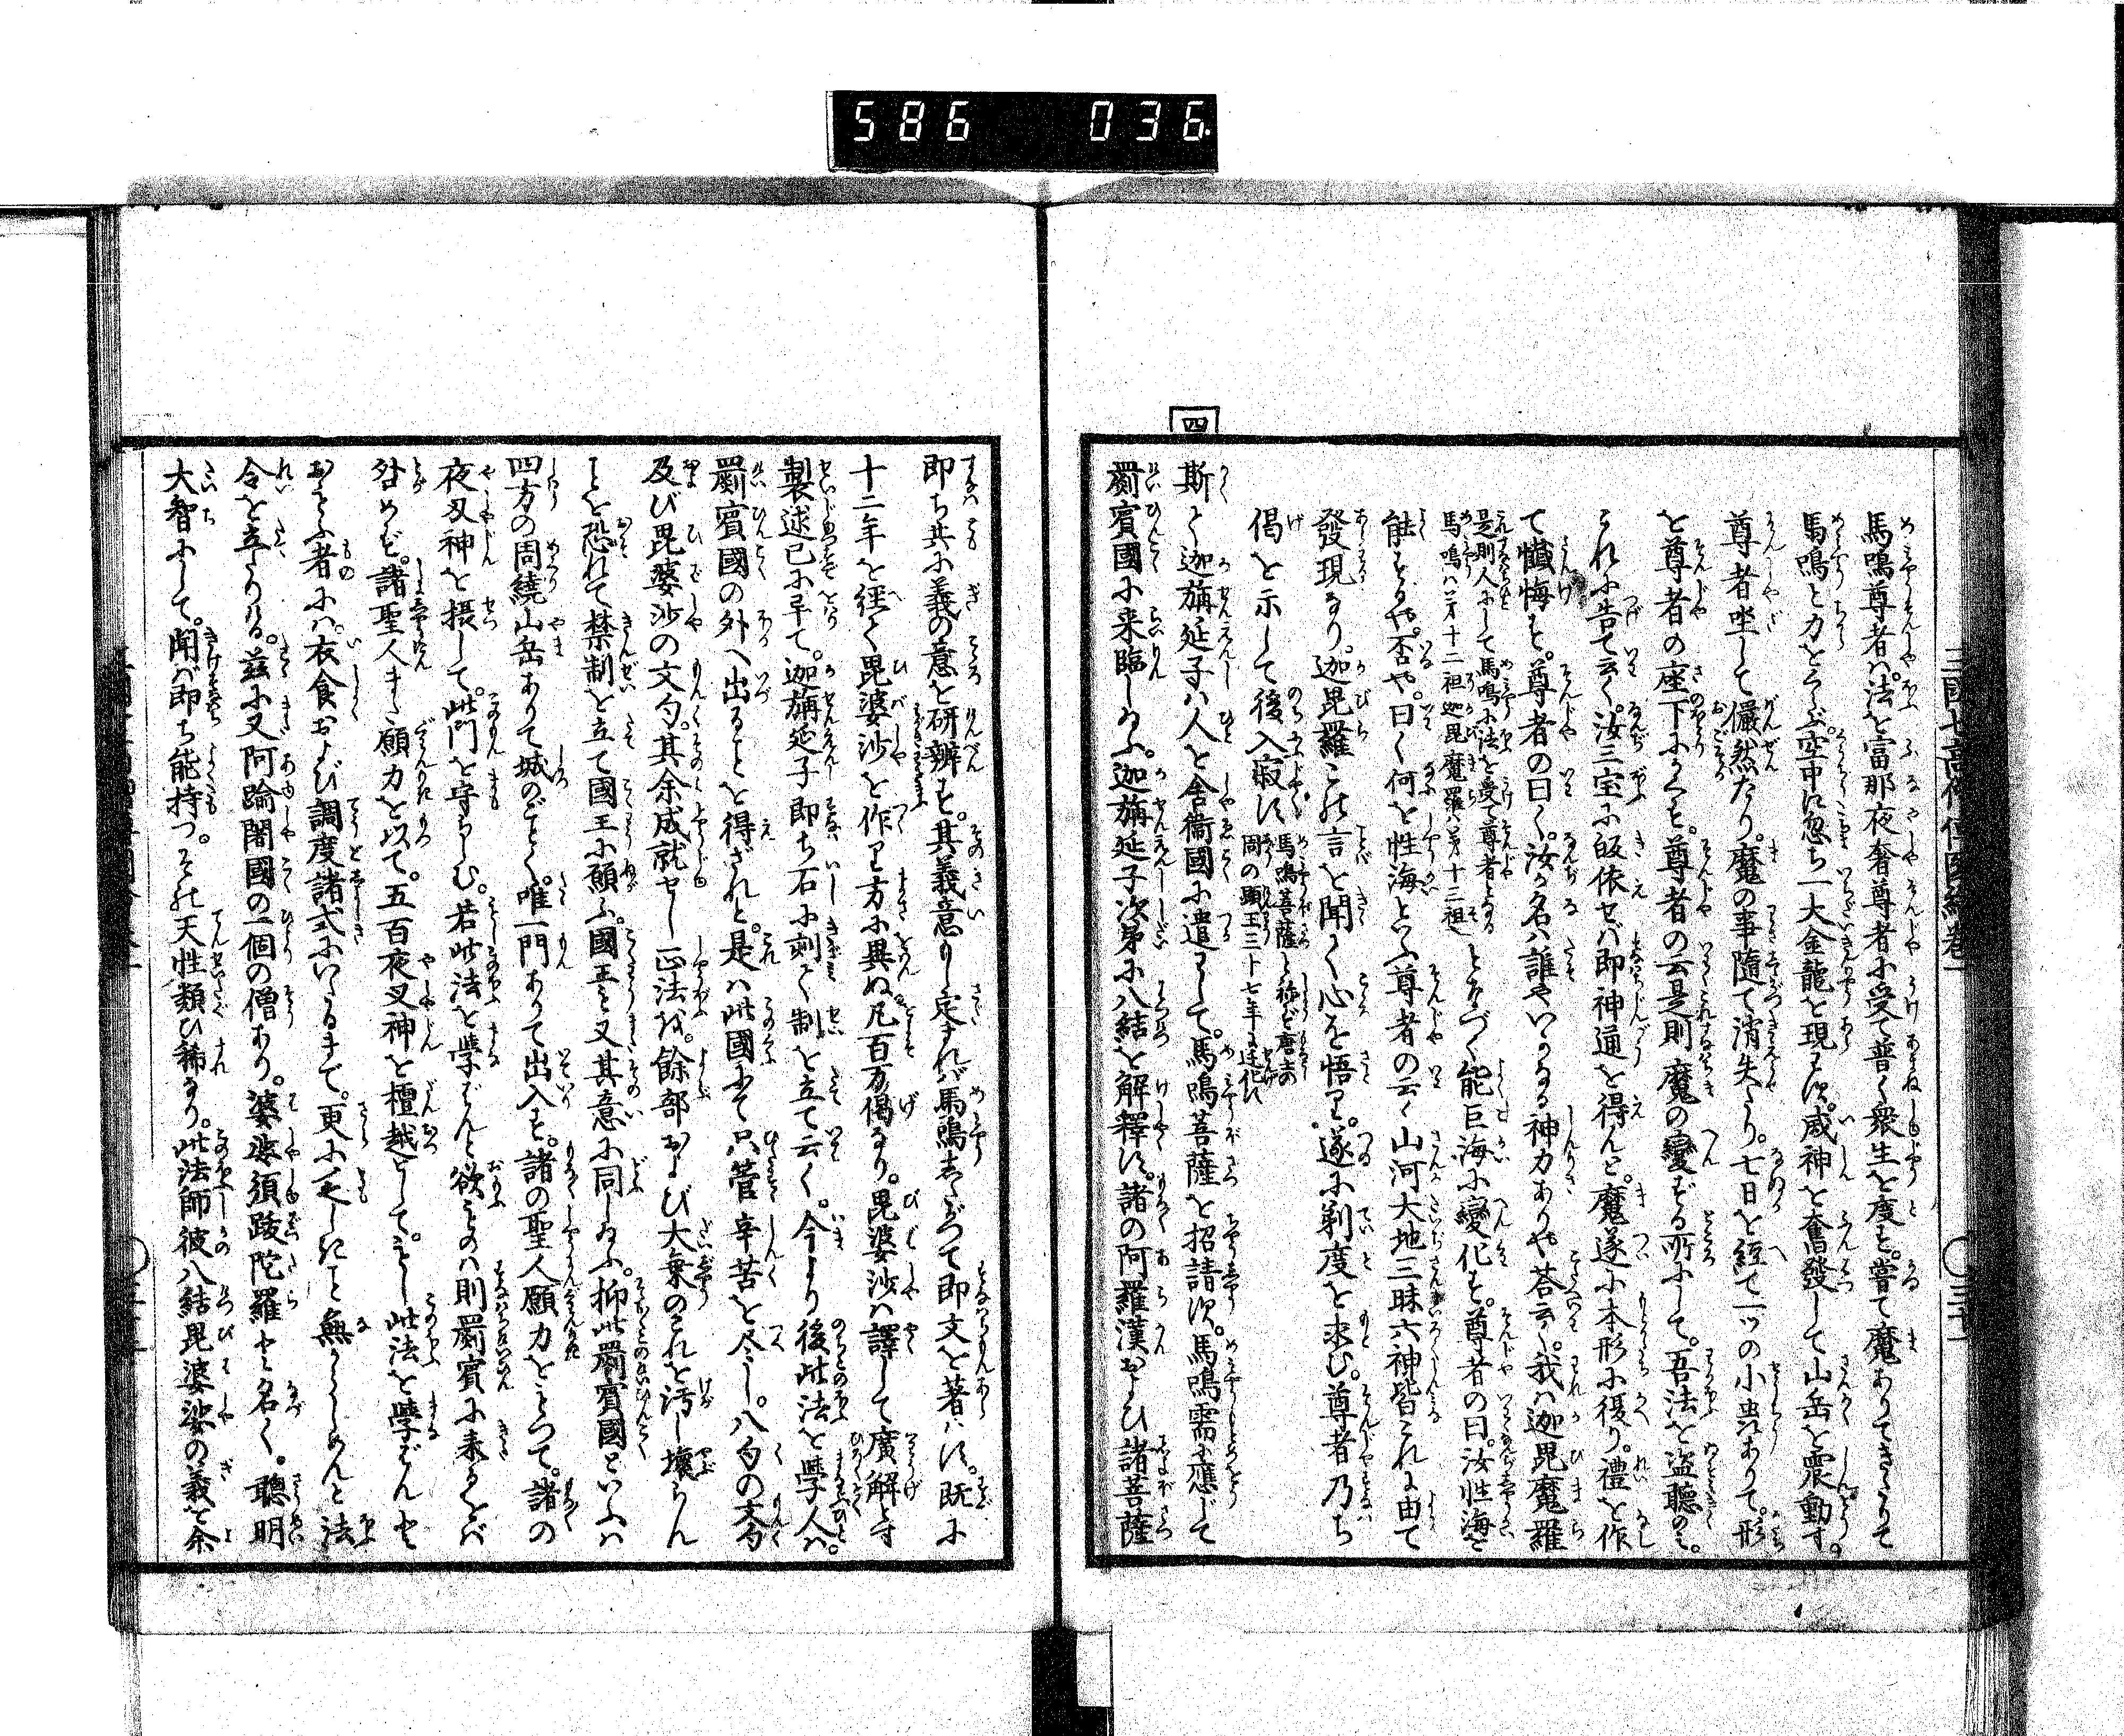 586 036
三國七高僧傳圖繪卷一
馬鳴尊者ハ。法を富那夜奢尊者に受て普く衆生を度す。嘗て魔ありてきたりて
馬鳴と力をくらぶ。空中に忽ち一大金龍を現はす。威神を奮發して山岳を震動す。
尊者坐して儼然たり。魔の事隨て消失たり。七日を經て一ツの小虫ありて。形
を尊者の座下にかくす。尊者の云是則魔の變ずる所にして。吾法を盗聽のミ。
これに告て云く。汝三宝に皈依せバ即神通を得んと。魔遂に本形に復り。禮を作
て懺悔す。尊者の曰く。汝ガ名ハ誰やいかなる神力ありや答云く。我ハ迦毘魔羅
是則人にして馬鳴に法を受て尊者となる
馬鳴ハ第十二祖迦毘魔羅ハ第十三祖
となづく能巨海に變化す。尊者の曰。汝性海を
能するや。否や。曰く何を性海といふ尊者の云く山河大地三昧六神皆これに由て
發現なり。迦毘羅この言を聞く心を悟り。遂に剃度を求む。尊者乃ち
偈を示して後入寂す
馬鳴菩薩と称ず唐土の
周の顕王三十七年に遷化す
四
斯く迦旃延子ハ人を舎衞國に遣して。馬鳴菩薩を招請す。馬鳴需に應じて
罽賓國に来臨しゐふ。迦旃延子次第に八結を解釋す。諸の阿羅漢および諸菩薩
即ち共に義の意を研辨す。其義意もし定まれバ馬鳴したがつて即文を著ハす。既に
十二年を經く毘婆沙を作り方に異ぬ凡百万偈なり。毘婆沙ハ譯して廣解と寸
製述已に早て。迦旃延子即ち石に刻く制を立て云く。今より後此法を學人ハ。
罽賓國の外へ出ることを得ざれと。是ハ此國にて只管辛苦を尽し。八句の文句
及び毘婆沙の文句。其余成就せし正法を。餘部および大乗のこれを汚し壞らん
ことを恐れて禁制を立て國王に願ふ。國王も又其意に同しゐふ。抑此罽賓國といふハ
四方の周繞山岳ありて城のごとく。唯一門ありて出入す。諸の聖人願力をもつて。諸の
夜叉神を摂して。此門を守らしむ。若此法を學ばんと欲ものハ則罽賓に來るをバ
咎めず。諸聖人また願力を以て。五百夜叉神を檀越として。もし此法を學ばんせ
おもふ者にハ。衣食および調度諸式にいたるまで。更に乏しきこと無らしめんと法
令を立たりける。茲に又阿踰闍國の一個の僧あり。婆娑須跋陀羅せと名く。聰明
大智にして。聞バ即ち能持つ。その天性類ひ稀なり。此法師彼八結毘婆娑の義を余